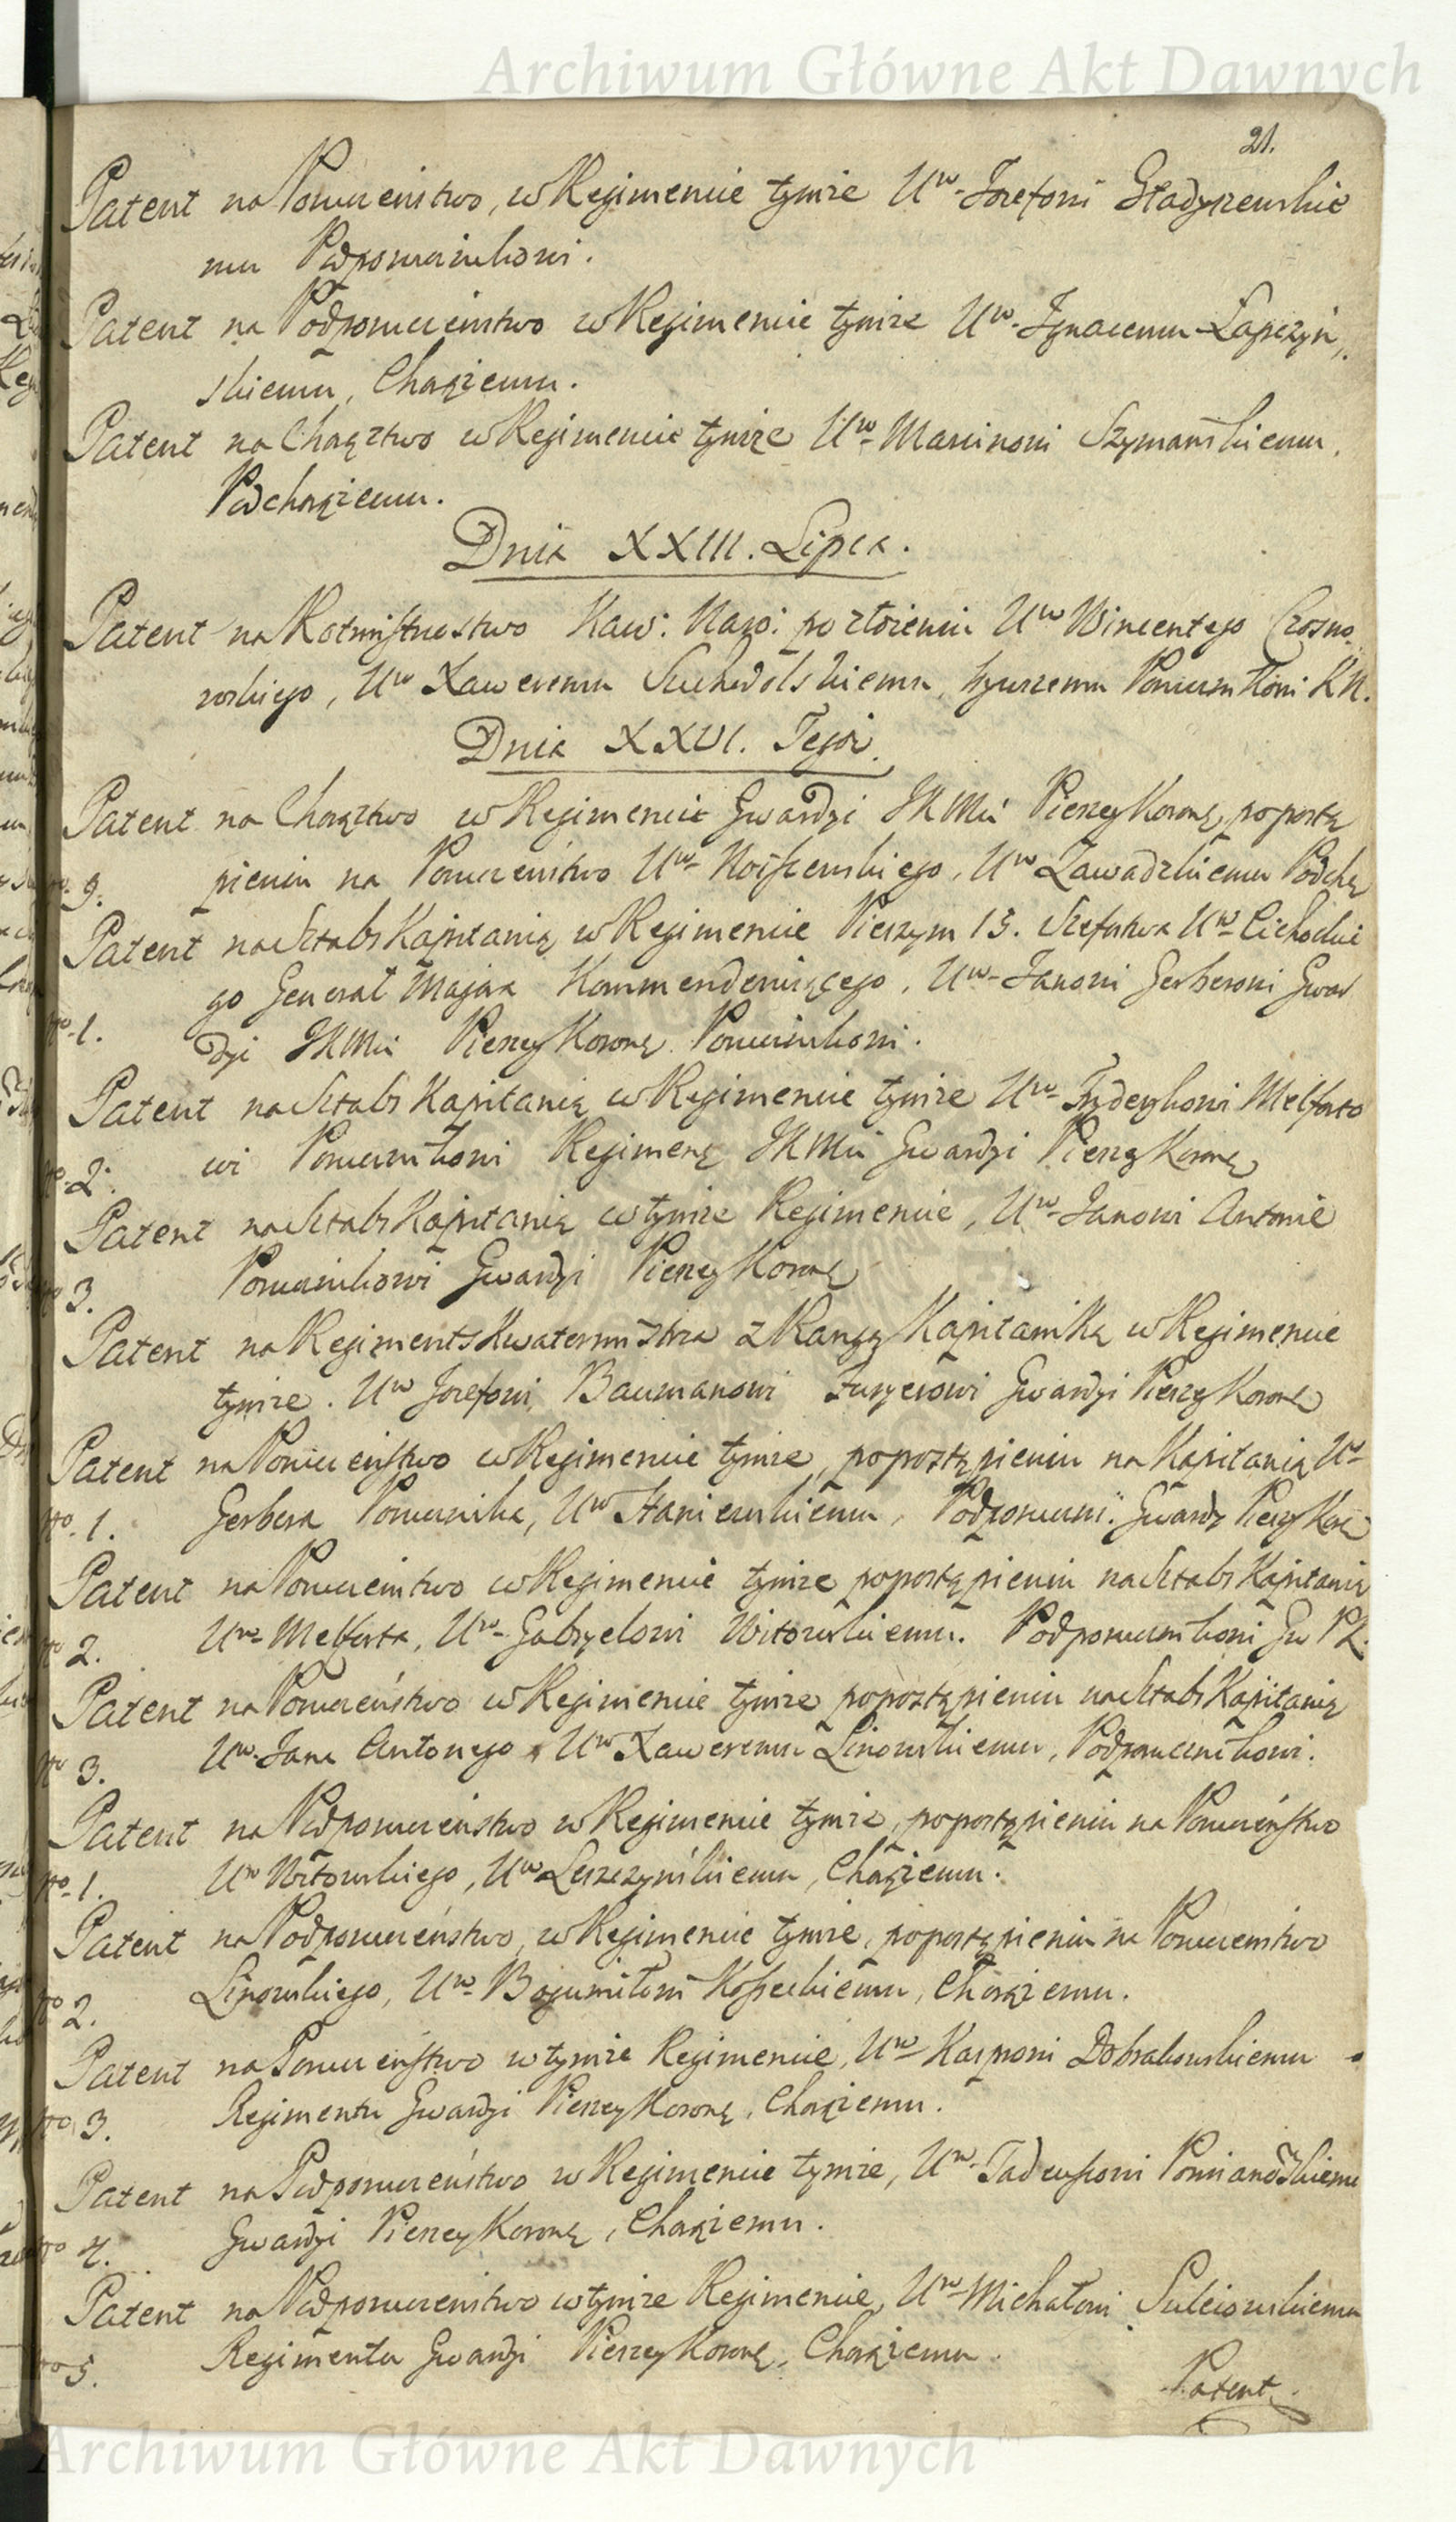 Archiwum Główne Akt Dawnych
21.
Patent na Porucznstwo, w Regimencie tymże Urw Jozefowi Gładyszewskie
mu Podporucznikowi.
Patent na Podporucznstwo w Regimencie tymże Urw Ignacemu Łapczyń,,
skiemu, Chorążemu.
Patent na Chorąztwo w Regimencie tymże Urw Marcinowi Szymańskiemu,
Podchorążemu.
Dnia XXIII. Lipca.
Patent na Rotmistrzostwo Kaw: Naro: po złożeniu Urw Wincentego Czosno,
wskiego, Urw Xaweremu Suchodolskiemu, Porucznikowi KN.
Dnia XXVI. Tegoż.
Patent na Chorąztwo w Regimencie Gwardyi JKMci Pieszey Koronę, po postą
No 9. pieniu na Poruczeństwo Urw Urw Zawadzkiemu Podchą
Patent na Sztabs Kapitanią w Regimencie Pieszym 15. Szefostwa Urw Cichockie
go Generał Majora Kommenderuiącego, Urw Janowi Gerberowi Gwar
No 1. dyi JKMci Pieszey Koronę Porucznikowi.
Patent na Sztabs Kapitanią w Regimencie tymże Urw Frydrykowi Melforto
No 2. wi Porucznikowi Regimenę JKMci Gwardyi Pieszey Koronę
Patent na Sztabs Kapitanią w tymże Regimencie, Urw Janowi Antonie
No 3. Porucznikowi Gwardyi Pieszey Koronę
Patent na Regiments Kwatermistrza z Rangą Kapitańską w Regimencie
tymże. Urw Jozefowi Baumanowi Furyerowi Gwardyi Pieszey Koronę
Patent na Poruczeństwo w Regimencie tymże, po postąpieniu na Kapitanią Urw
No. 1. Gerbera Porucznika, Urw Staniewskiemu, Podporuczni: Gwardy Pieszy Koro
Patent na Poruczeństwo w Regimencie tymże po postąpieniu na Sztabs Kapitanią
No 2. Urw Melforta, Urw Gabryelowi Witowskiemu. Podporucznikowi Gw PK.
Patent na Poruczeństwo w Regimencie tymże po postąpieniu na Sztabs Kapitanią
No 3. Urw Jana Antonego, Urw Xaweremu Linowskiemu, Podporucznikowi.
Patent na Podporuczeństwo w Regimencie tymże, po postąpieniu na Poruczeństwo
No. 1. Urw Witowskiego, Urw Leszczyńskiemu, Chorążemu.
Patent na Podporuczeństwo, w Regimencie tymże, po postąpieniu na Poruczeństwo
No 2. Linowskiego, Urw Bogumiłowi Kosseckiemu, Chorążemu.
Patent na Poruczeństwo w tymże Regimencie, Urw Kasprowi Dobrakowskiemu
No 3. Regimentu Gwardyi Pieszey Koronę, Chorążemu.
Patent na Podporuczeństwo w Regimencie tymże, Urw Tadeuszowi Pomianowskiemu
No 4. Gwardyi Pieszey Koronę, Chorążemu.
Patent na Podporuczeństwo w tymże Regimencie, Urw Michałowi Sulciowskiemu
No 5. Regimentu Gwardyi Pieszey Koronę, Chorążemu.
Patent.
Archiwum Główne Akt Dawnych